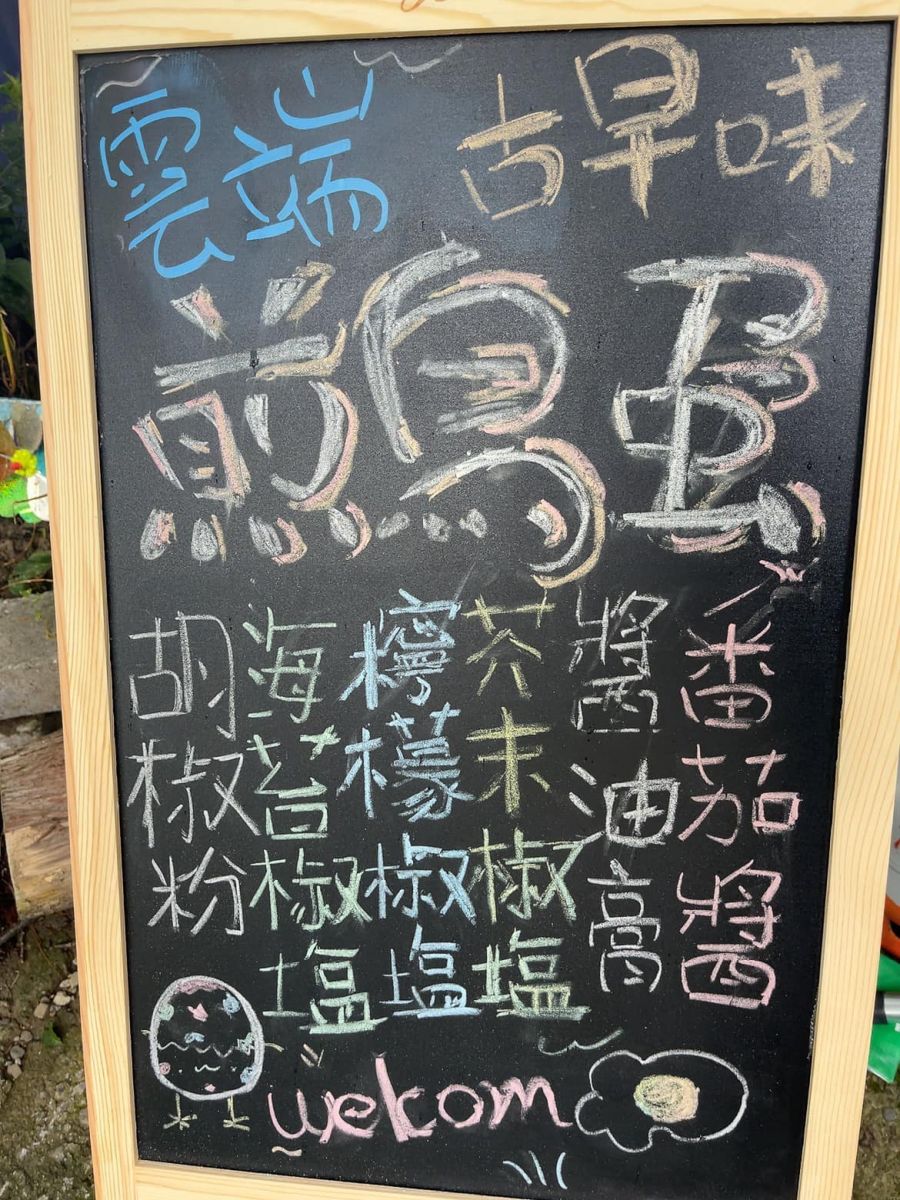 雲端
古早味
煎鳥蛋
番茄醬
醬油膏
芥末椒塩
檸檬椒塩
海苔椒塩
胡椒粉
welcom